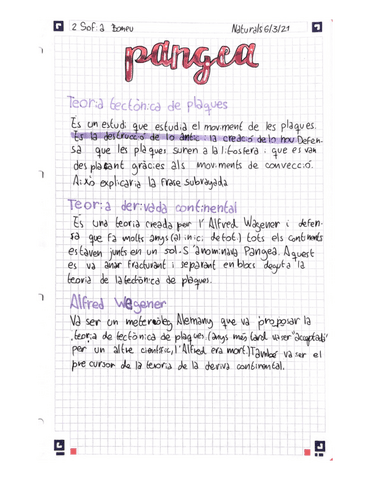 2 Sofia Naturals 6/3/21
pangea
Teoria tectònica de plaques
Es un estudi que estudia el moviment de les plaques.
Es la destrucció de lo antic i la creació de lo nou. Defen-
sa que les plaques suren a la litosfera que es van
desplaçant gràcies als moviments de convecció.
Aixo explicaria la frase subrayada
Teoria derivada continental
És una teoria creada per l'Alfred Wagener i defen-
sa que fa molts anys (al inici de tot) tots els continents
estaven junts en un sol. S'anominava Pangea. Aquest
es va anar fracturant i separant en blocs deguta la
teoria de la tectònica de plaques.
Alfred Wegener
Va ser un metereòleg Alemany que va proposar la
teoria de tectònica de plaques (anys més tard va ser acceptada
per un altre científic, l'Alfred era mort). També va ser el
precursor de la teoria de la deriva continental.